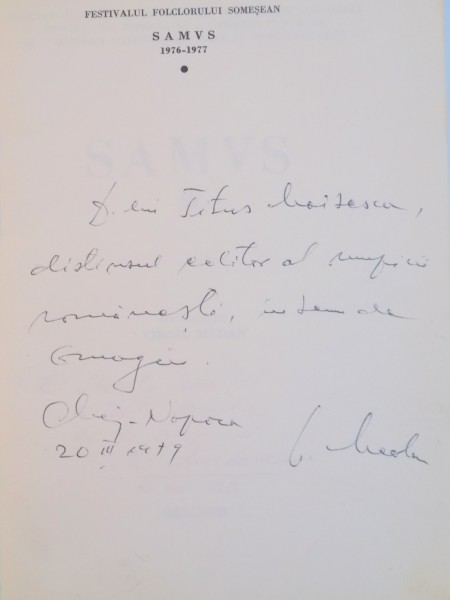 FESTIVALUL FOLCLORULUI SOMEȘEAN
SAMVS
1976-1977
SAMVS
D-lui Titus Moisescu,
distinsul editor al muzicii
românești, în semn de
omagiu.
Cluj-Napoca
20 III 1979